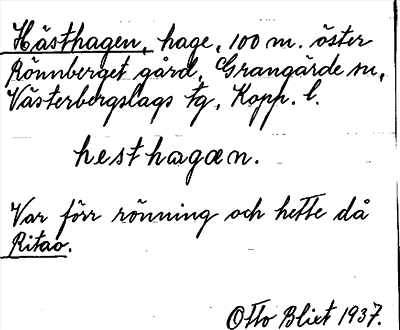 Hästhagen, hage, 100 m. öster
Rönnberget gård, Grangärde sn,
Västerbergslags tg, Kopp. l.
hesthagæn.
Var förr rönning och hette då
Ritao.
Otto Blixt 1937.